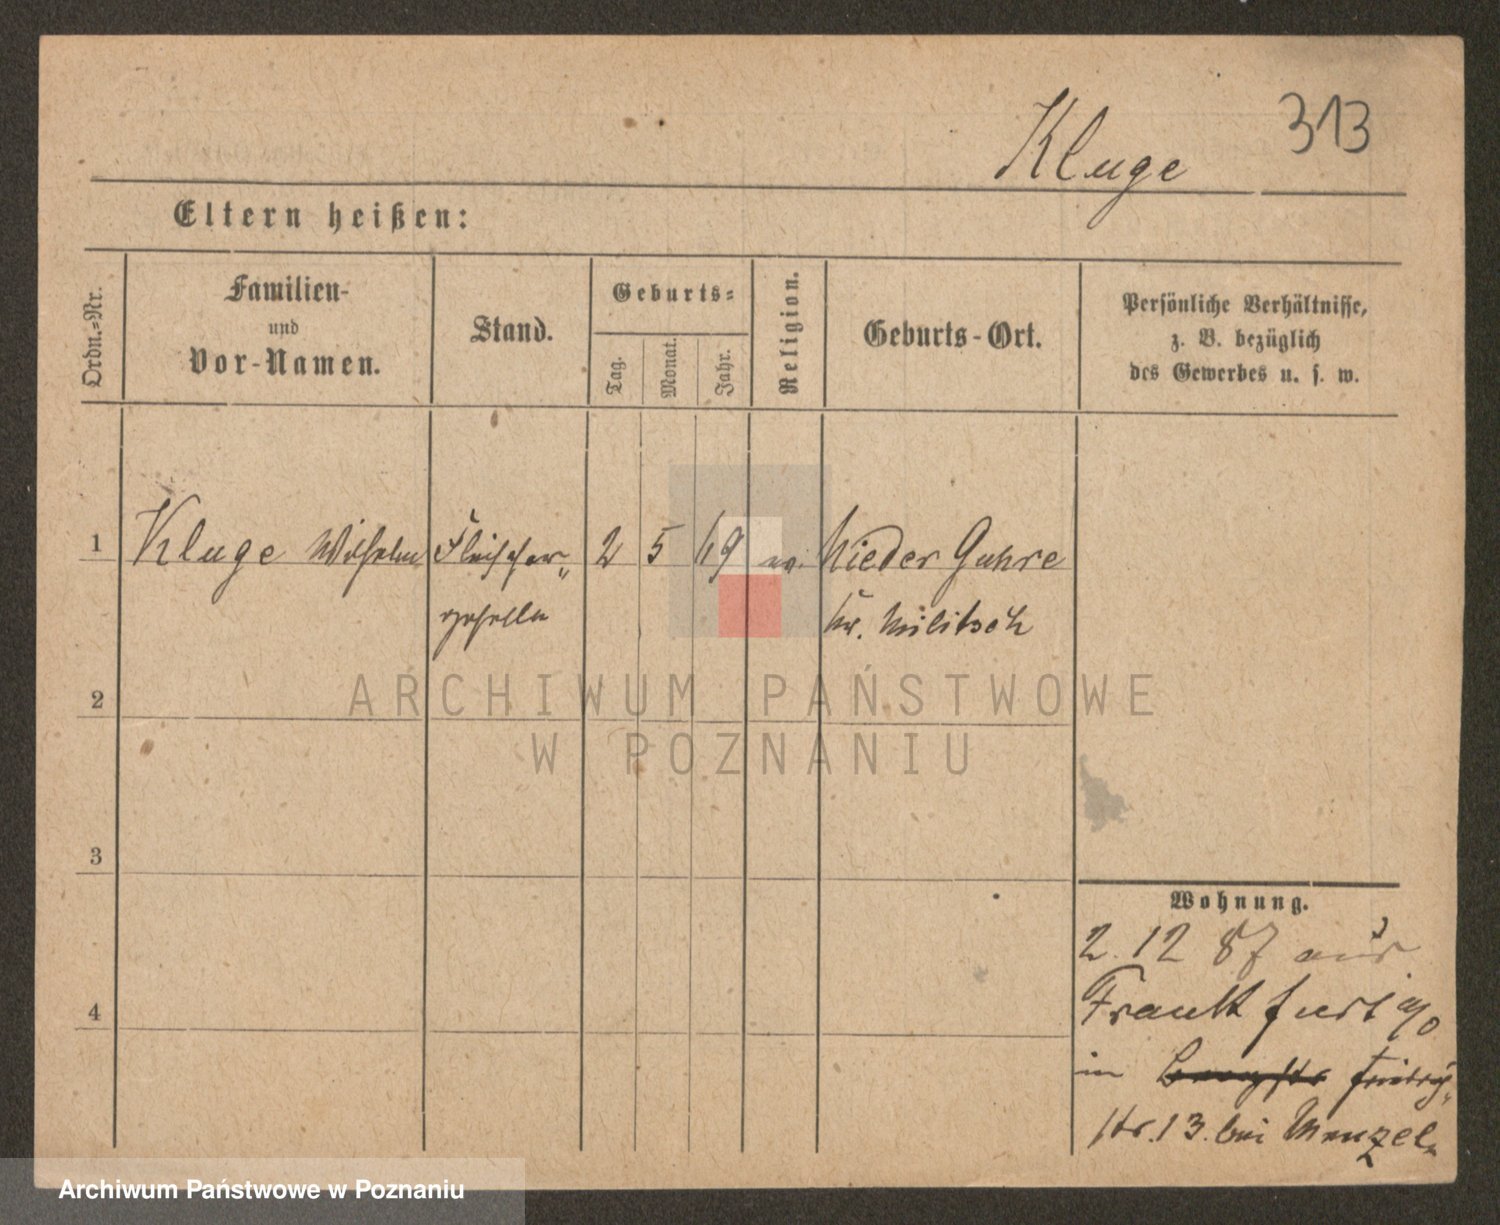 313
Kluge
Eltern heißen:
Ordn.-Nr.
Familien-
und
Vor-Namen.
Stand.
Geburts-
Tag.
Monat.
Jahr.
Religion.
Geburts-Ort.
Persönliche Verhältnisse,
z. B. bezüglich
des Gewerbes u. s. w.
1
Kluge Wilhelm
Fleischer-
geselle
2
5
69
ev.
Nieder Guhre
Kr. Militsch
2
3
4
Wohnung.
2. 12 87 aus
Frankfurt a/O
in Bergstr Friedrich-
str. 13. bei Menzel.
ARCHIWUM PAŃSTWOWE
W POZNANIU
Archiwum Państwowe w Poznaniu